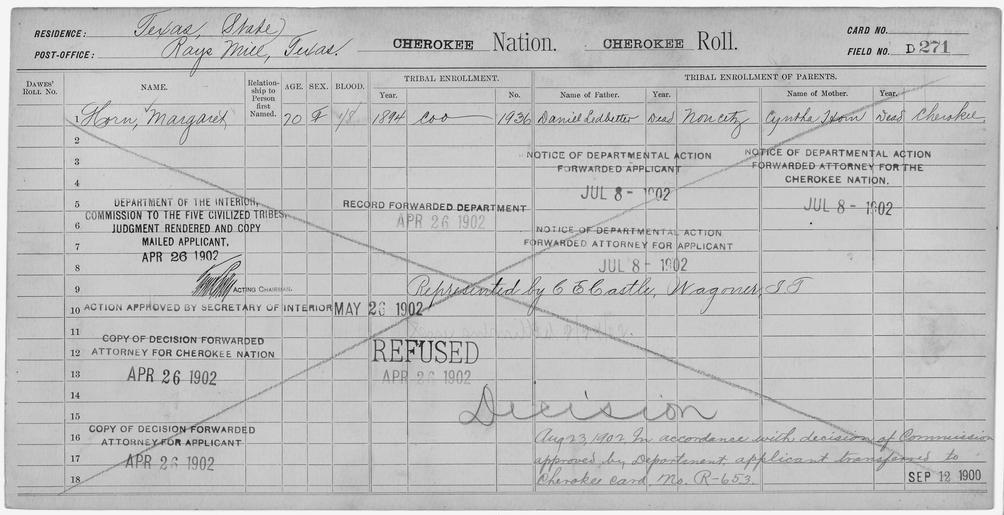 RESIDENCE: Texas, State
POST-OFFICE: Rays Mill, Texas.
CHEROKEE Nation. CHEROKEE Roll.
CARD NO.
FIELD NO. D 271
DAWES' ROLL NO. NAME. Relationship to Person first Named. AGE. SEX. BLOOD. TRIBAL ENROLLMENT. Year. No. TRIBAL ENROLLMENT OF PARENTS. Name of Father. Year. Name of Mother. Year.
1 Horn, Margaret 20 F 1/8 1894 Coo 1936 Daniel Ledbetter Dead Noncitz Cyntha Horn Dead Cherokee
2
3
NOTICE OF DEPARTMENTAL ACTION
FORWARDED APPLICANT
JUL 8 - 1902
NOTICE OF DEPARTMENTAL ACTION
FORWARDED ATTORNEY FOR THE
CHEROKEE NATION.
JUL 8 - 1902
4
5
DEPARTMENT OF THE INTERIOR,
COMMISSION TO THE FIVE CIVILIZED TRIBES,
JUDGMENT RENDERED AND COPY
MAILED APPLICANT.
APR 26 1902
ACTING CHAIRMAN.
RECORD FORWARDED DEPARTMENT
APR 26 1902
6
NOTICE OF DEPARTMENTAL ACTION
FORWARDED ATTORNEY FOR APPLICANT
JUL 8 - 1902
7
8
9 Represented by C E Castle, Wagoner, I T
10 ACTION APPROVED BY SECRETARY OF INTERIOR MAY 26 1902
11
COPY OF DECISION FORWARDED
12 ATTORNEY FOR CHEROKEE NATION
REFUSED
13 APR 26 1902
APR 26 1902
14
15 Decision
COPY OF DECISION FORWARDED
16 ATTORNEY FOR APPLICANT
17 APR 26 1902
18
Aug 23, 1902 In accordance with decision of Commission
approved by Department, applicant transferred to
Cherokee card No. R-653.
SEP 12 1900